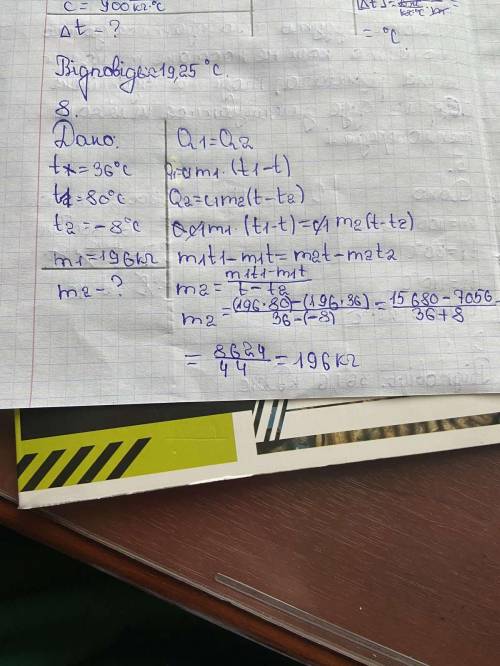 c = 900 кг·°С
Δt - ?
= °C
Відповідь: 19,25 °С.
8.
Дано:
t = 36°C
t1 = 80°C
t2 = -8°C
m1 = 196кг
m2 - ?
Q1 = Q2
m1 · (t1-t)
Q2 = c1m2(t-t2)
m1 · (t1-t) = c1 m2 (t-t2)
m1t1 - m1t = m2t - m2t2
m2 = m1t1-m1t / t-t2
m2 = (196·80)-(196·36) / 36-(-8) = 15680-7056 / 36+8
= 8624 / 44 = 196кг